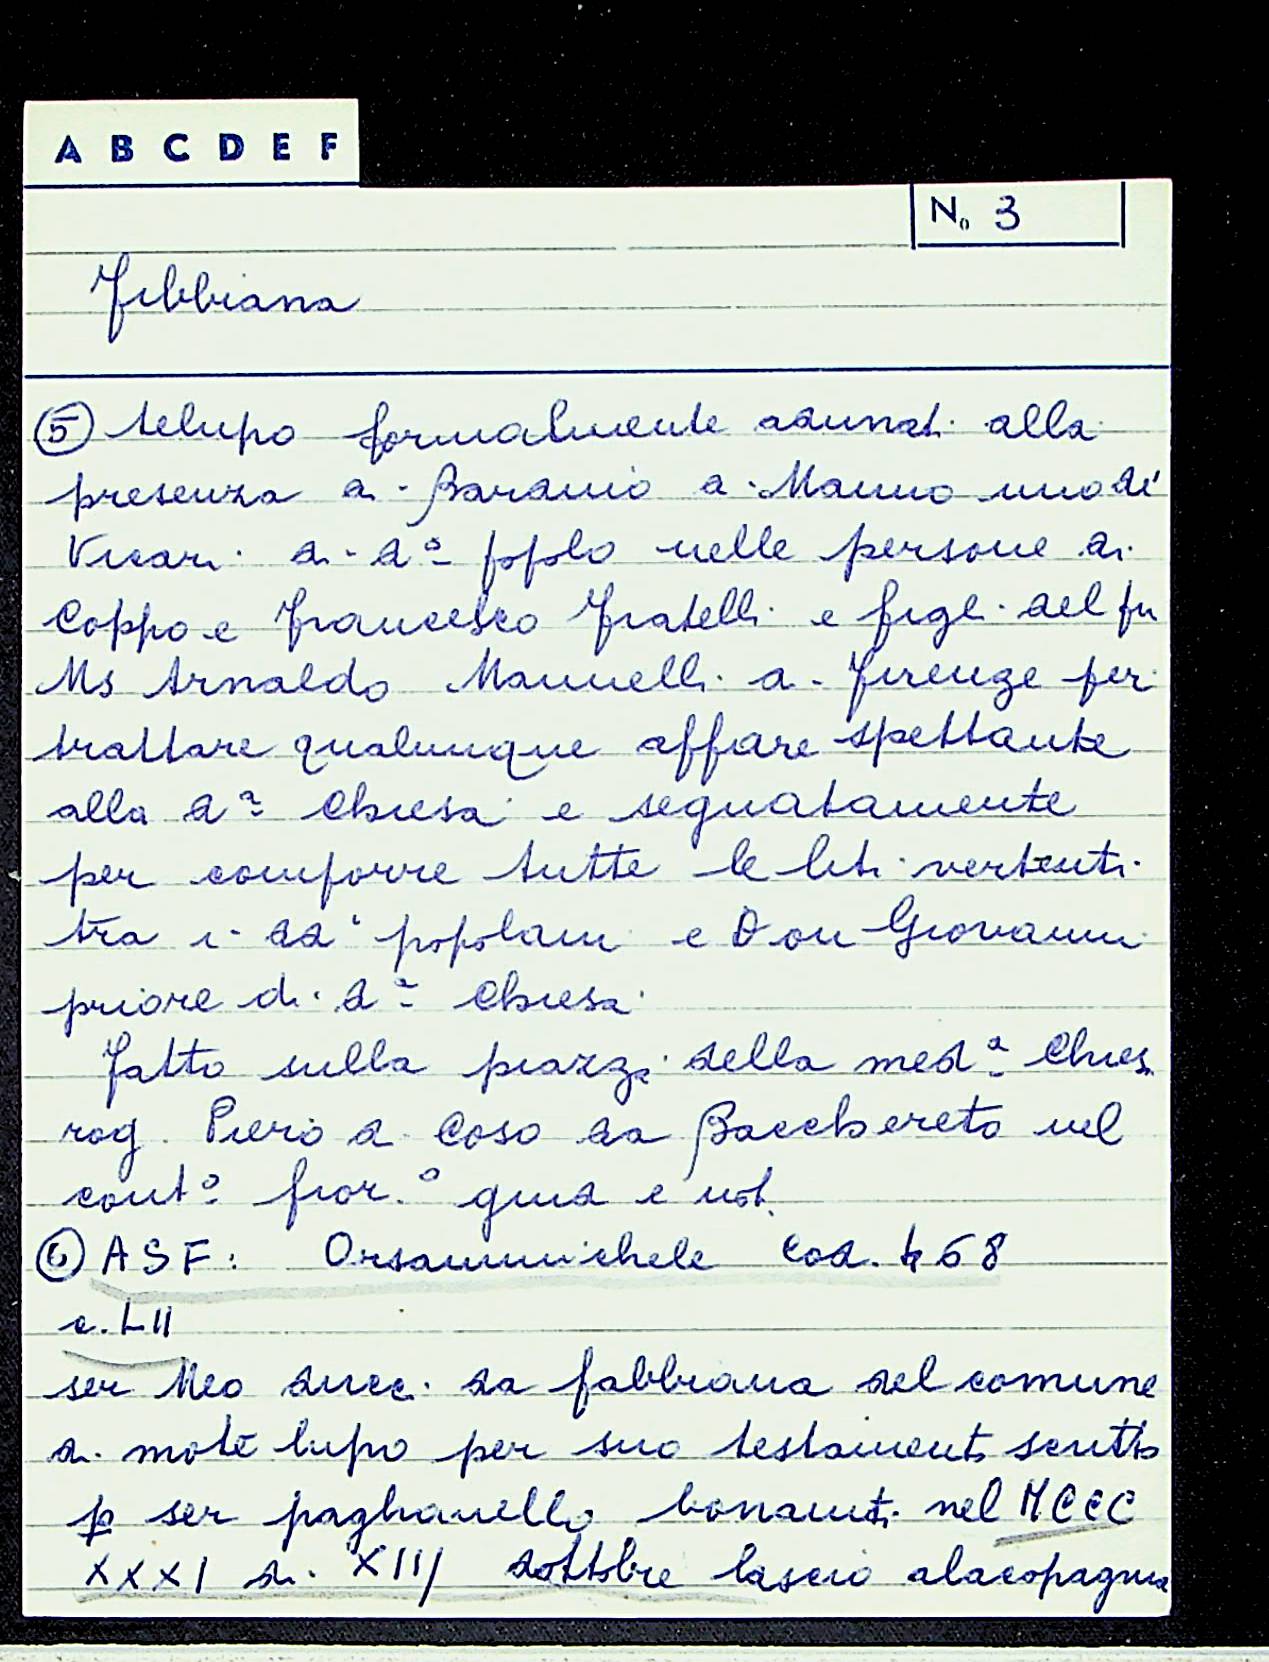 A B C D E F
No 3
Fibbiana
⑤ telupo formalmente adunati alla
presenza di Baranio di Manno uno dei
Vicari di do popolo nelle persone di
Coppo e Francesco Fratelli e figli del fu
Ms Arnaldo Mannelli di Firenze per
trattare qualunque affare spettante
alla da Chiesa e segnatamente
per comporre tutte le liti vertenti
tra i dd popolani e Don Giovanni
priore di da Chiesa
Fatto sulla piazza della meda Chies.
rog. Piero d. Coso da Bacchereto nel
conto fior.o giud e not.
⑥ ASF: Orsanmichele Cod. 468
c. LII
ser Meo ducc. da fabbiana del comune
di mōte lupo per suo testamento scritto
p ser paghanello bonamti. nel MCCC
XXXI di. XIII dottobre lascio alacopagnia